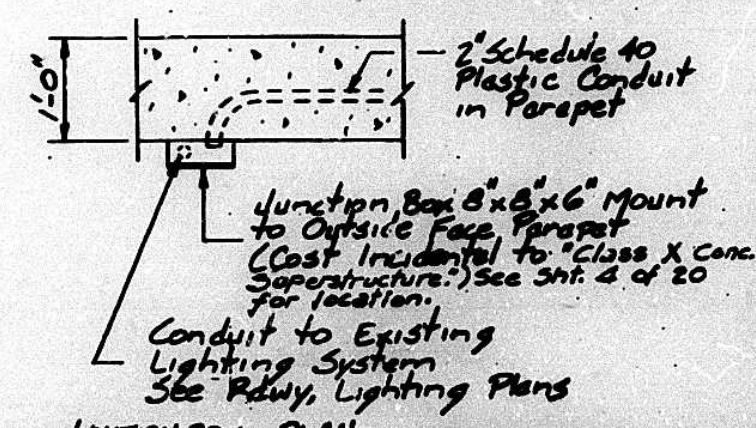 1'-0"
2" Schedule 40
Plastic Conduit
in Parapet
Junction Box 8"x8"x6" Mount
to Outside Face Parapet
(Cost Incidental to "Class X Conc.
Superstructure.") See Sht. 4 of 20
for location.
Conduit to Existing
Lighting System
See Rdwy, Lighting Plans
PLAN